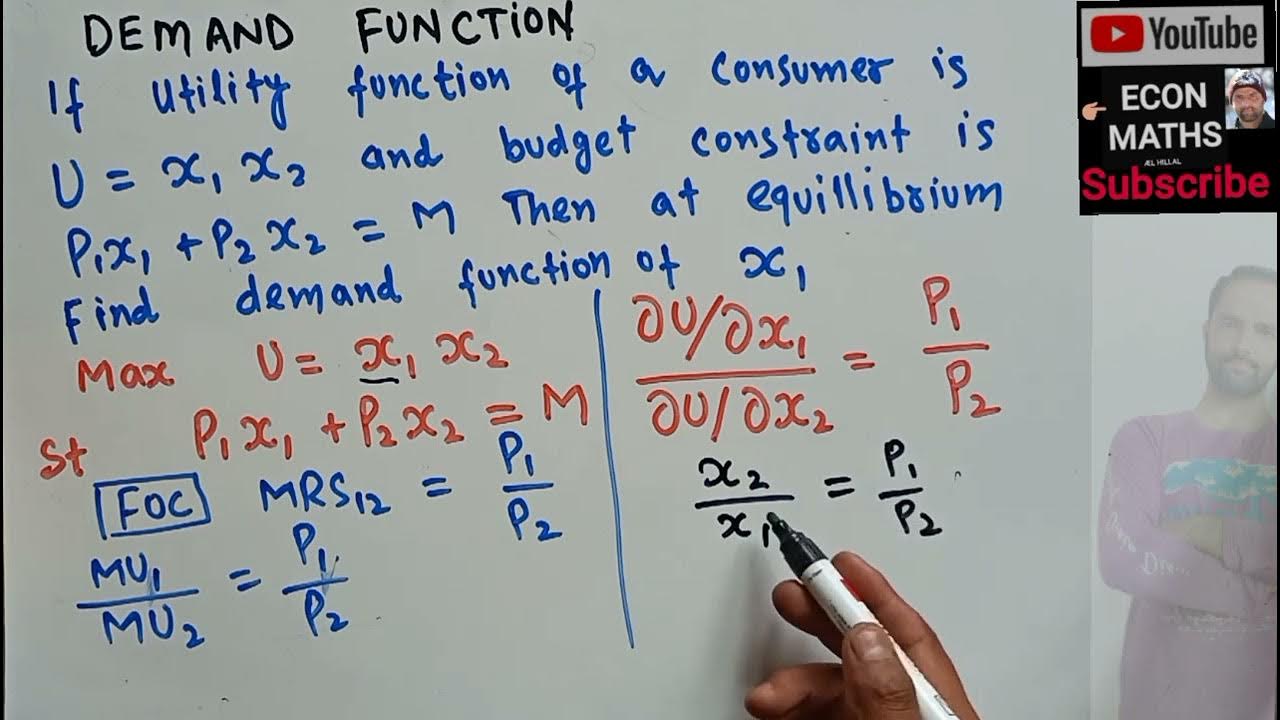 DEMAND FUNCTION
If utility function of a consumer is
U = x₁ x₂ and budget constraint is
P₁x₁ + P₂x₂ = M Then at equillibrium
Find demand function of x₁
Max U = x₁ x₂
St P₁x₁ + P₂x₂ = M
FOC MRS₁₂ = P₁/P₂
MU₁/MU₂ = P₁/P₂
∂U/∂x₁ / ∂U/∂x₂ = P₁/P₂
x₂/x₁ = P₁/P₂
YouTube
ECON
MATHS
ÆL HILLAL
Subscribe